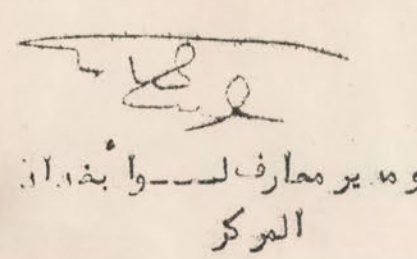 ومدير معارف لـــوا بغداد
المركز